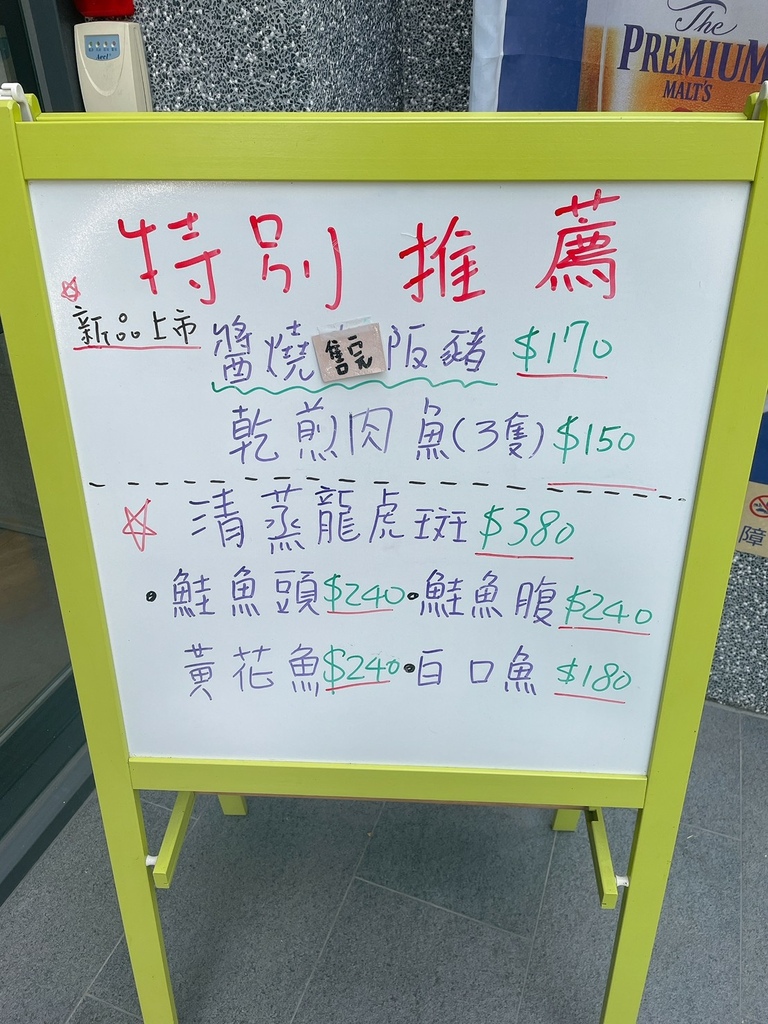 The
PREMIUM
MALT'S
特別推薦
新品上市
醬燒售完阪豬 $170
乾煎肉魚(3隻) $150
清蒸龍虎斑 $380
·鮭魚頭 $240 ·鮭魚腹 $240
黃花魚 $240 ·白口魚 $180
障